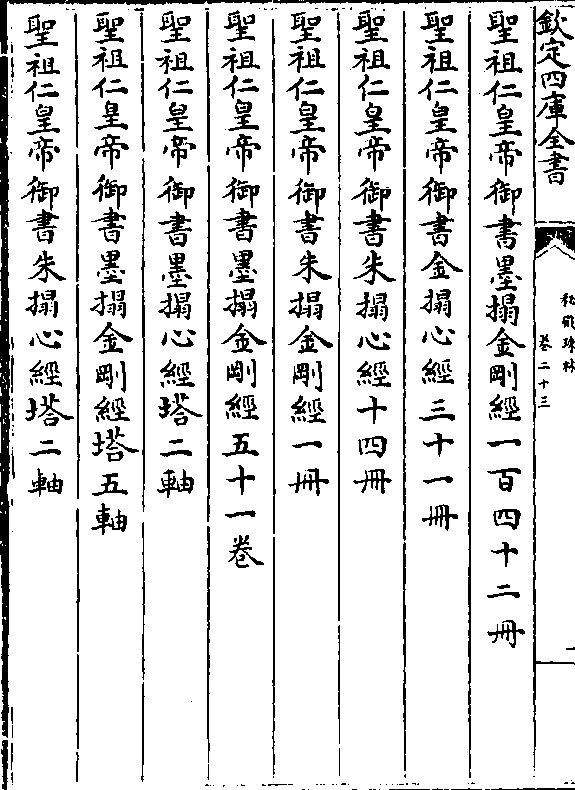 欽定四庫全書
秘殿珠林
卷二十三
一
聖祖仁皇帝御書墨搨金剛經一百四十二冊
聖祖仁皇帝御書金搨心經三十一冊
聖祖仁皇帝御書朱搨心經十四冊
聖祖仁皇帝御書朱搨金剛經一冊
聖祖仁皇帝御書墨搨金剛經五十一卷
聖祖仁皇帝御書墨搨心經塔二軸
聖祖仁皇帝御書墨搨金剛經塔五軸
聖祖仁皇帝御書朱搨心經塔二軸